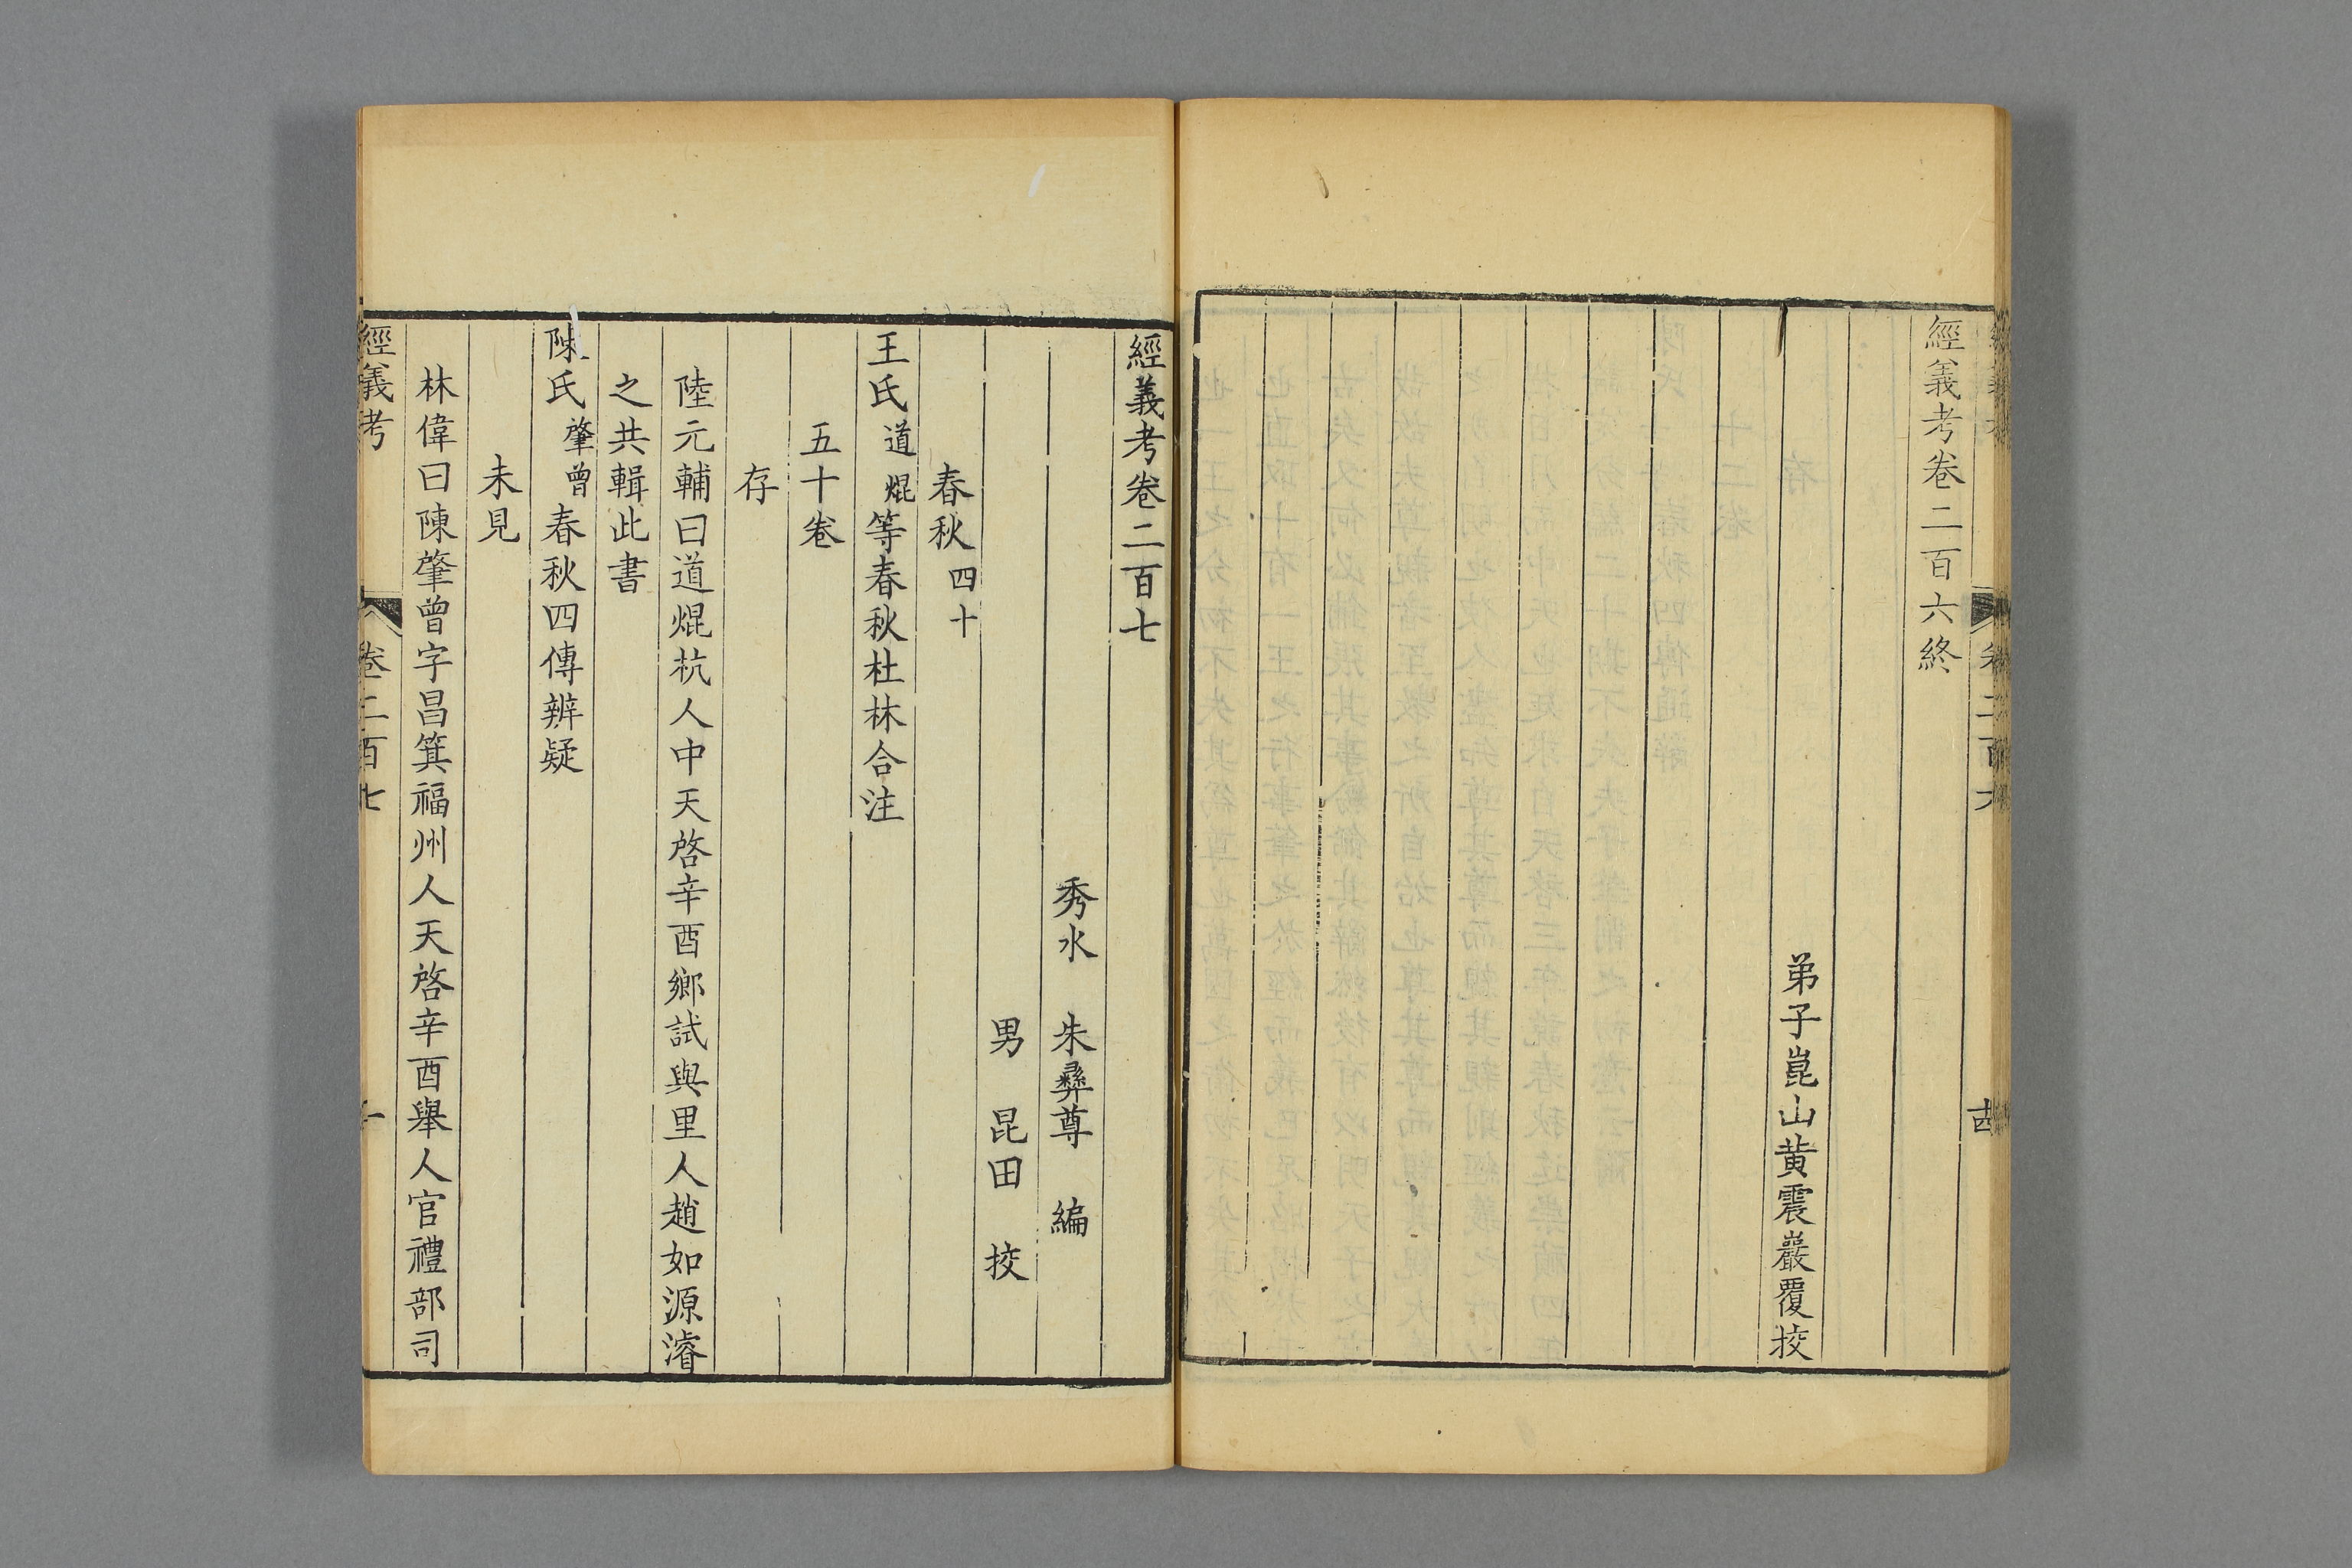 經義考卷二百六終
弟子崑山黃震巖覆挍
經義考卷二百七
秀水 朱彝尊 編
男 昆田 挍
春秋四十
王氏道焜等春秋杜林合注
五十卷
存
陸元輔曰道焜杭人中天啓辛酉鄉試與里人趙如源濬
之共輯此書
陳氏肇曾春秋四傳辨疑
未見
林偉曰陳肇曾字昌箕福州人天啓辛酉舉人官禮部司
經義考 卷二百七